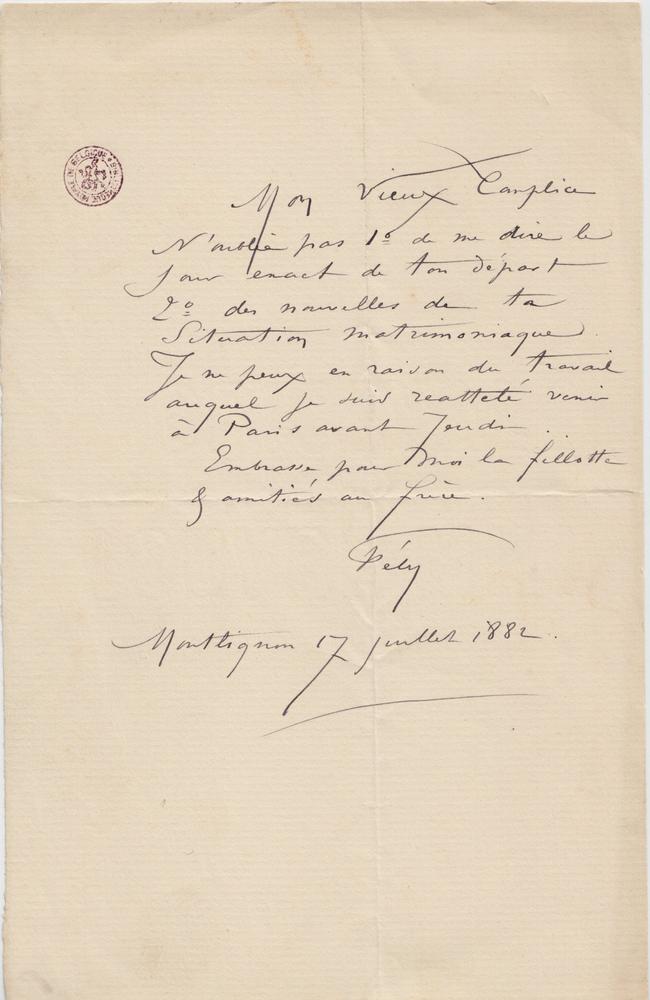 BIBLIOTHÈQUE ROYALE DE BELGIQUE
Mon Vieux Complice
N'oublie pas 1º de me dire le
Jour exact de ton départ
2º des nouvelles de ta
Situation matrimoniaque.
Je ne peux en raison du travail
auquel je suis reattelé venir
à Paris avant Jeudi.
Embrasse pour moi la fillotte
& amitiés au frère.
Fély
Montlignon 17 juillet 1882.